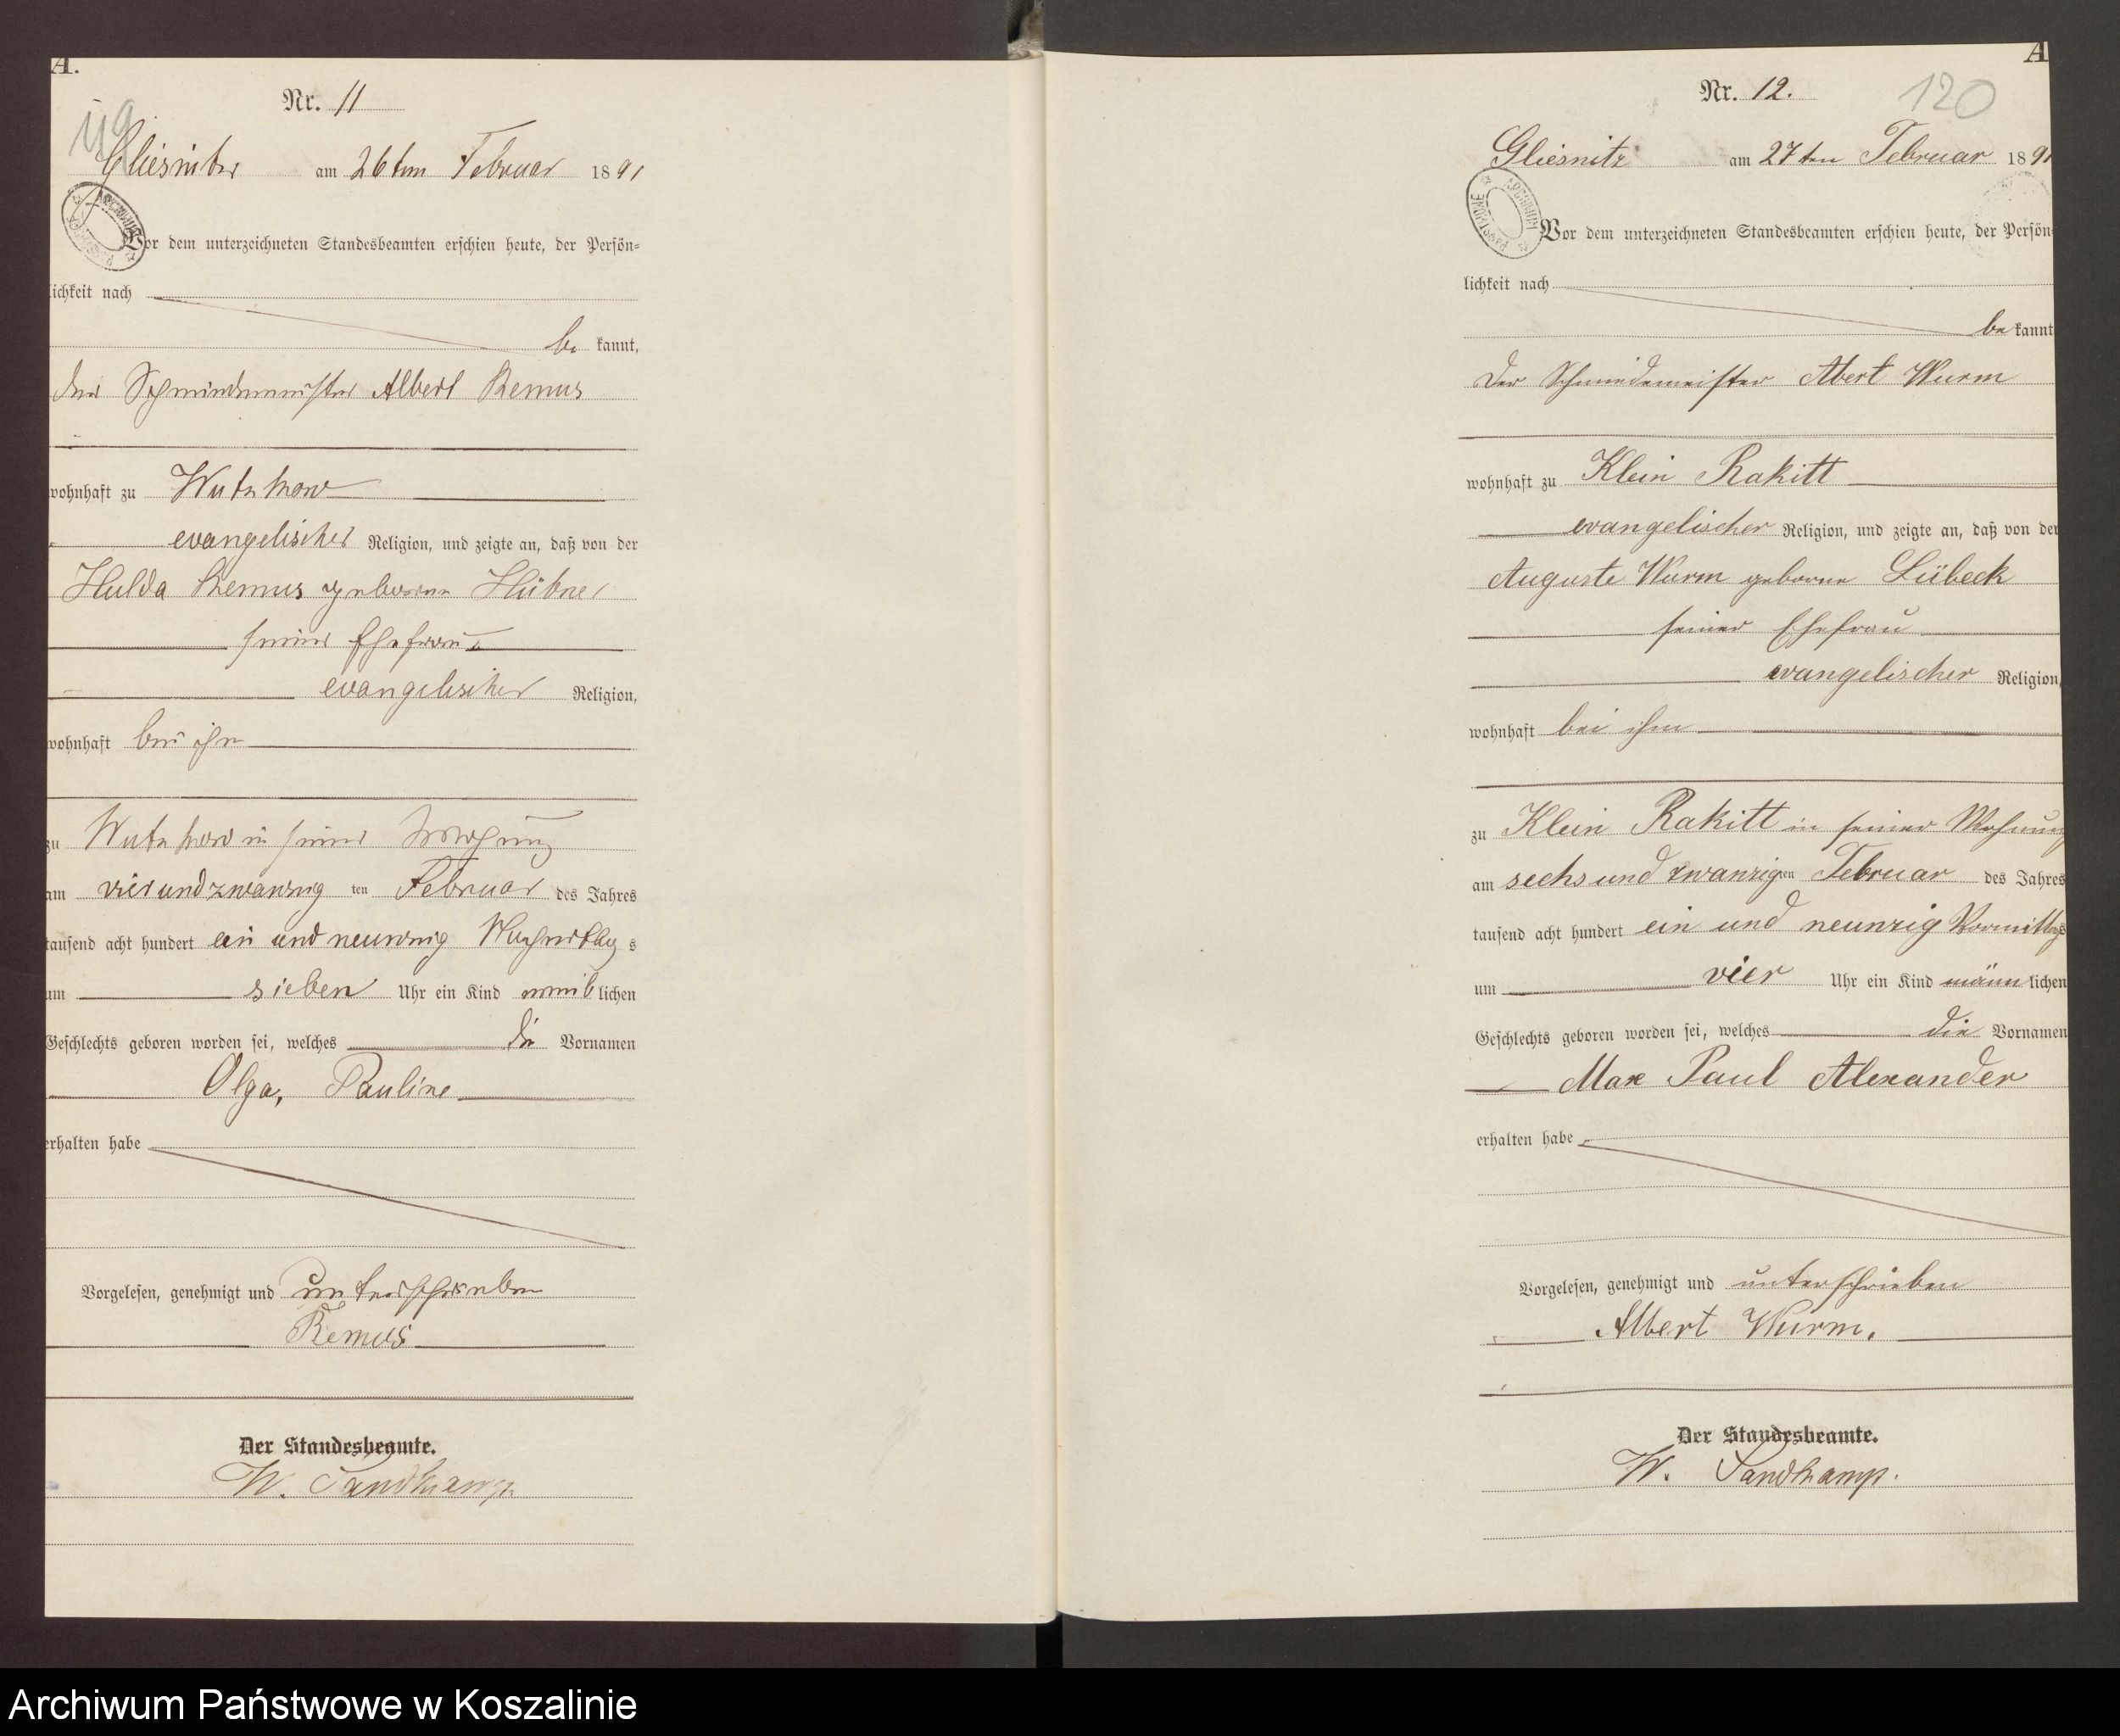 A.
Nr. 11
119
Gliesnitz am 26ten Februar 1891
Vor dem unterzeichneten Standesbeamten erschien heute, der Persön=
lichkeit nach
be kannt,
der Schmiedemeister Albert Remus
wohnhaft zu Wutzkow
evangelischer Religion, und zeigte an, daß von der
Hulda Remus geborene Hübner
seiner Ehefrau
evangelischer Religion,
wohnhaft bei ihm
zu Wutzkow in seiner Wohnung
am vierundzwanzig ten Februar des Jahres
tausend acht hundert ein und neunzig Nachmittag s
um sieben Uhr ein Kind weib lichen
Geschlechts geboren worden sei, welches die Vornamen
Olga, Pauline
erhalten habe
Vorgelesen, genehmigt und unterschrieben
Remus
Der Standesbeamte.
W. Sandkamp
A
Nr. 12.
120
Gliesnitz am 27ten Februar 1891
Vor dem unterzeichneten Standesbeamten erschien heute, der Persön
lichkeit nach
be kannt
Der Schmiedemeister Abert Wurm
wohnhaft zu Klein Rakitt
evangelischer Religion, und zeigte an, daß von der
Auguste Wurm geborene Lübeck
seiner Ehefrau
evangelischer Religion,
wohnhaft bei ihm
zu Klein Rakitt in seiner Wohnung
am sechsundzwanzigten Februar des Jahres
tausend acht hundert ein und neunzig Vormittags
um vier Uhr ein Kind männlichen
Geschlechts geboren worden sei, welches die Vornamen
Max Paul Alexander
erhalten habe
Vorgelesen, genehmigt und unterschrieben
Albert Wurm.
Der Standesbeamte.
W. Sandkamp.
Archiwum Państwowe w Koszalinie